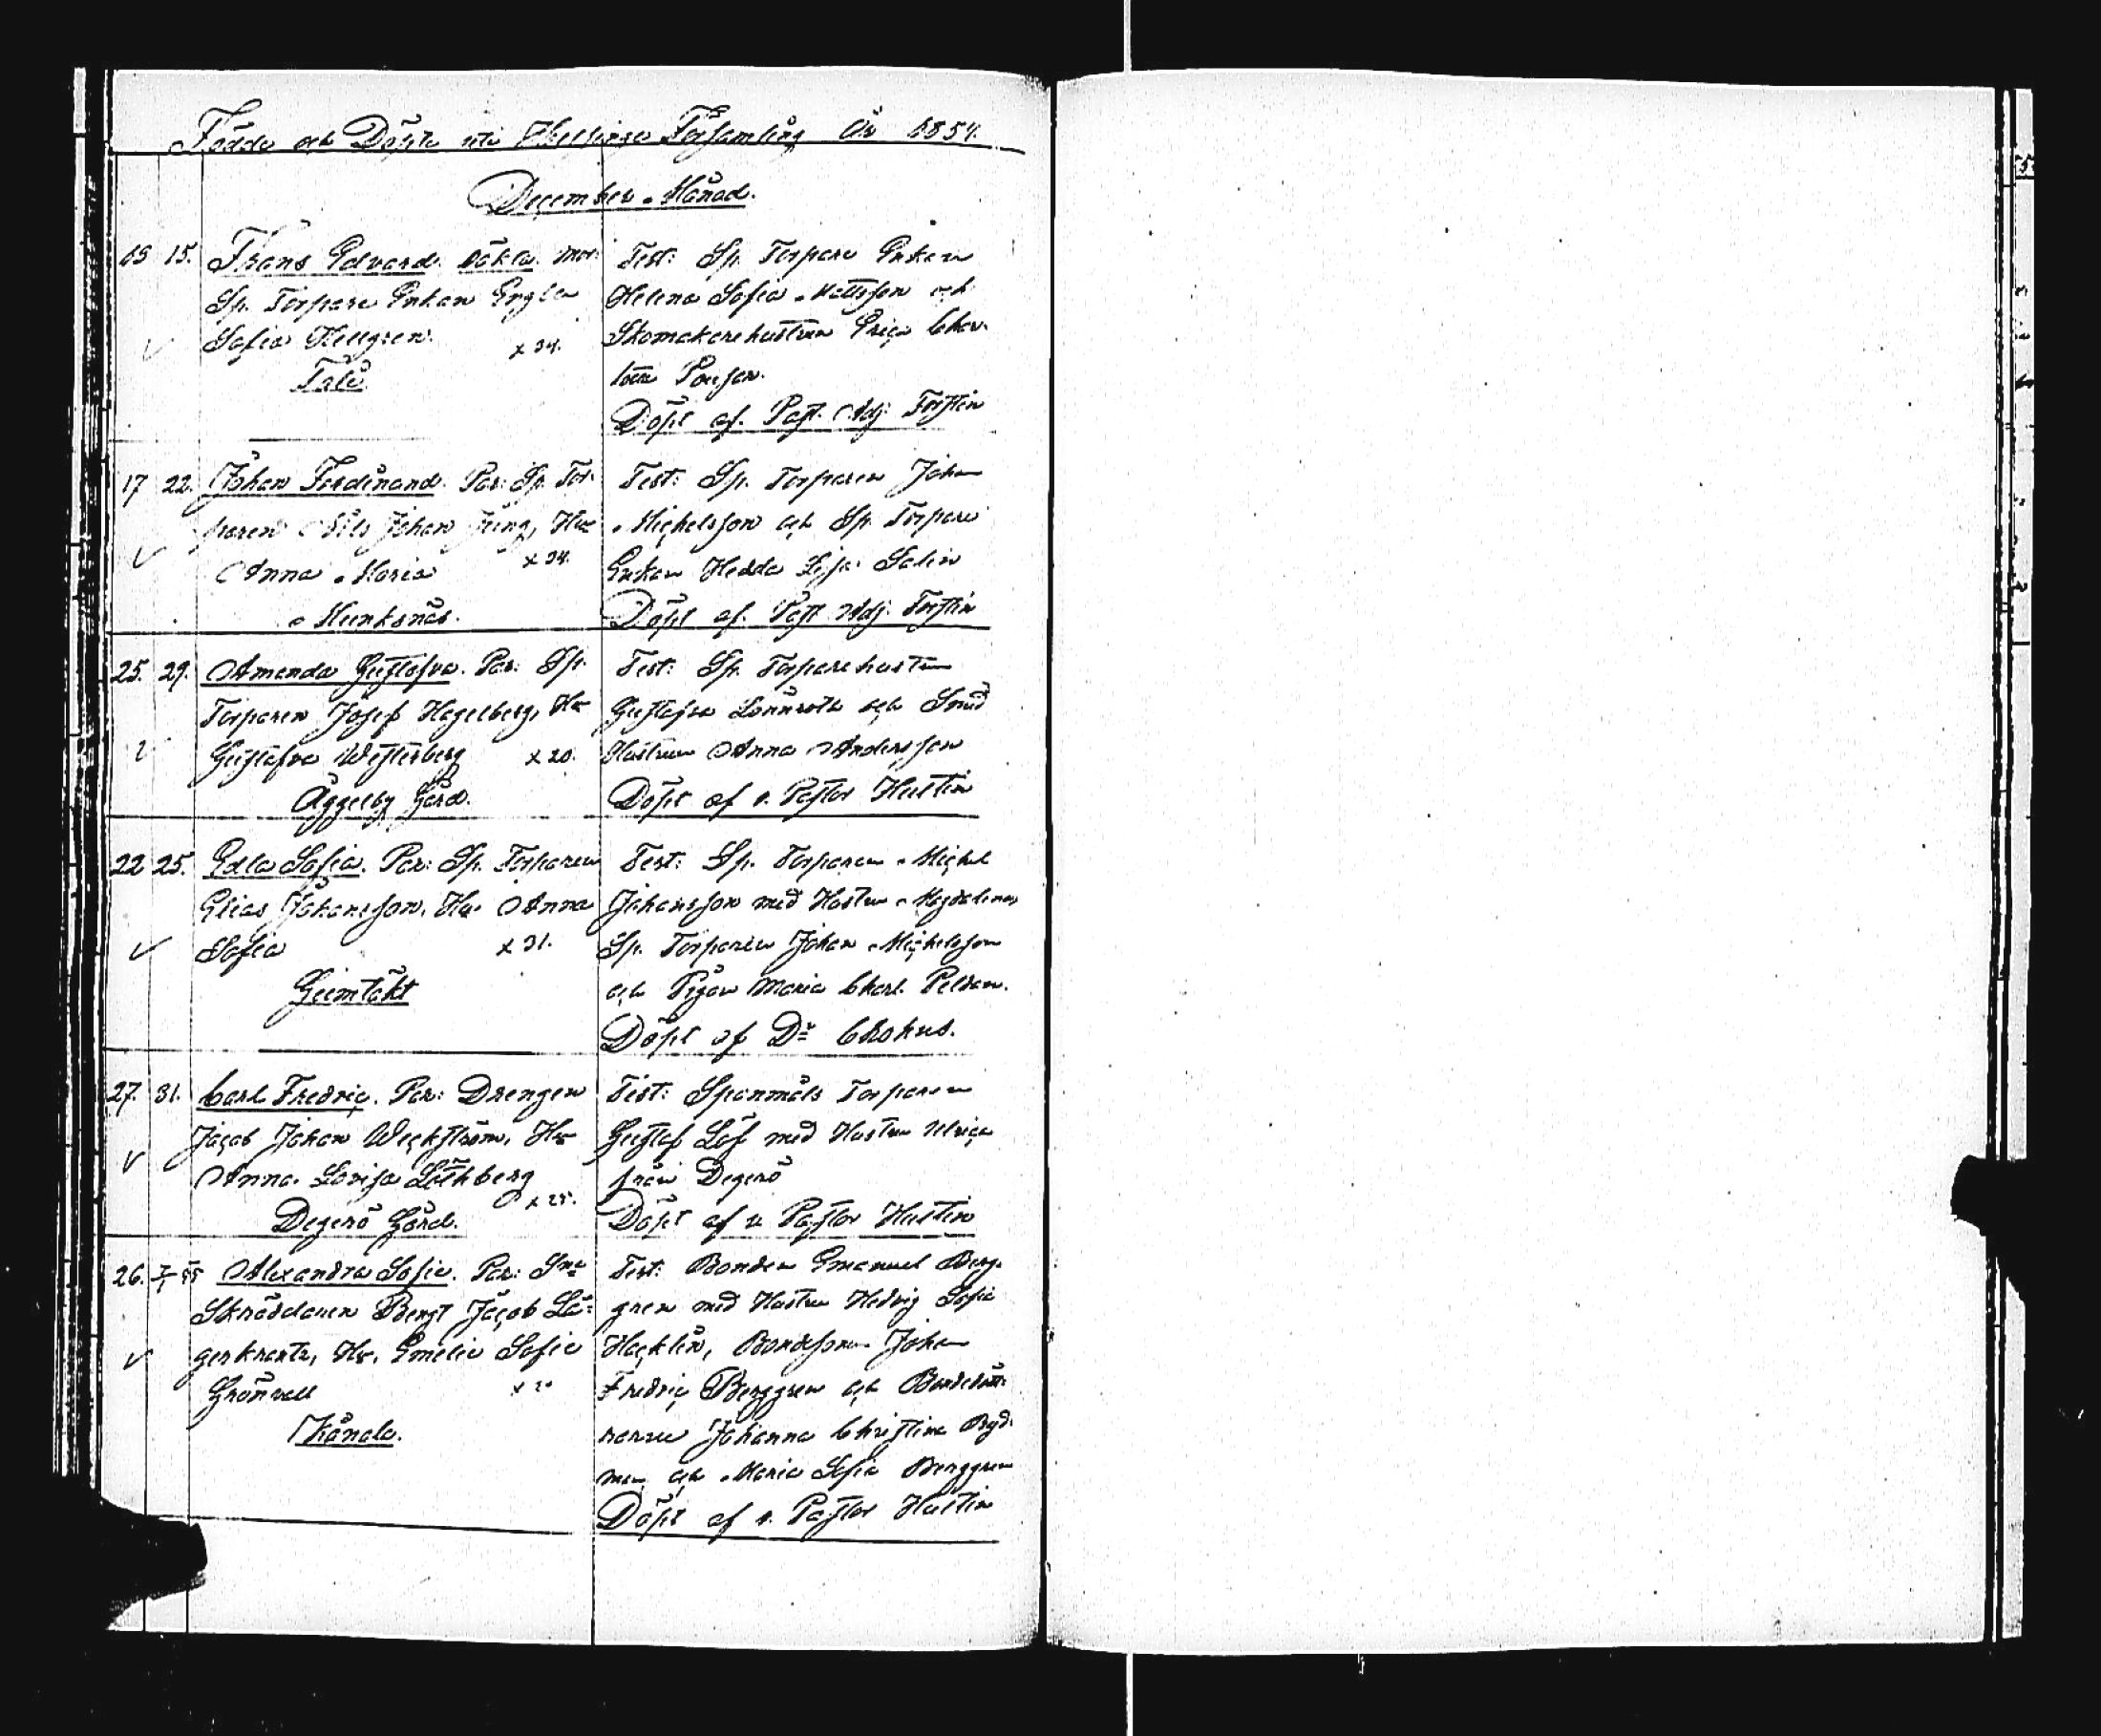 Födde och Döpte uti Helsinge Församling År 1854.
December Månad.
15 15. Frans Edvard. oäkta. Mor:
Sp. Torpare Enkan Engla
Sofia Hellgren. x 34.
Tali
Test: Sp. Torpare Enkan
Helena Sofia Mattsson och
Skomakarehustrun Erica Char-
lotta
Döpt af. Past. Adj. Forstén
17 22. Johan Ferdinand. Par: Sp. Tor-
paren Nils Johan Ljung, Hu
Anna Maria x 34.
Munksnäs.
Test: Sp. Torparen Johan
Michelsson och Sp. Torpare
Enkan Hedda Lisa Salin
Döpt af. Past. Adj. Forstén
25. 29. Amanda Gustafva. Par: Sp.
Torparen Josef Hagelberg, Hu
Gustafva Westerberg x 20.
Åggelby Gård.
Test: Sp. Torparehustrun
Gustafva Lönnroth och Smed
Hustrun Anna Andersson
Döpt af v. Pastor Hustin
22 25. Edla Sofia. Par: Sp. Torparen
Elias Johansson, Hu. Anna
Sofia x 31.
Gumtäkt
Test: Sp. Torparen Michel
Johansson med Hustru Magdalena
Sp. Torparen Johan Michelsson
och Pigan Maria Charl. Peldan.
Döpt af Dr Crohns.
27. 31. Carl Fredric. Par: Drengen
Jacob Johan Weckström, Hu
Anna Lovisa Löthberg
x 25.
Degerö Gård.
Test: Spanmåls Torparen
Gustaf Löf med Hustru Ulrica
från Degerö
Döpt af v Pastor Hustin
26. 7/1 55 Alexandra Sofia. Par: Sne
Skräddaren Bengt Jacob La-
gerkrantz, Hu. Emelie Sofie
Grönvall
Kånala.
Test: Bonden Emanuel Berg-
gren med Hustru Hedvig Sofia
Hecklin, Bondsonen Johan
Fredric Berggren och Bondedött-
rarne Johanna Christina Ryd-
man och Maria Sofia Berggren
Döpt af v. Pastor Hustin